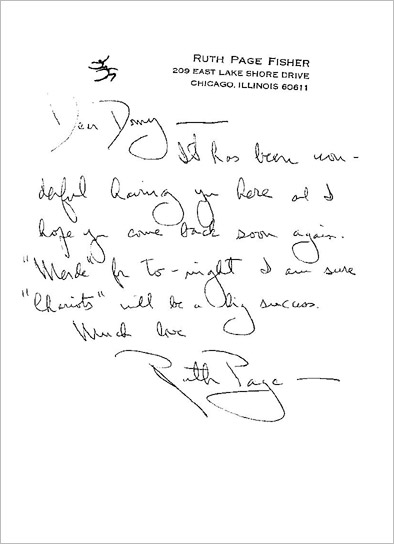 RUTH PAGE FISHER
209 EAST LAKE SHORE DRIVE
CHICAGO, ILLINOIS 60611
Dear Danny —
It has been won-
derful having you here and I
hope you come back soon again.
"Merde" for to-night I am sure
"Chariots" will be a big success.
Much love
Ruth Page —